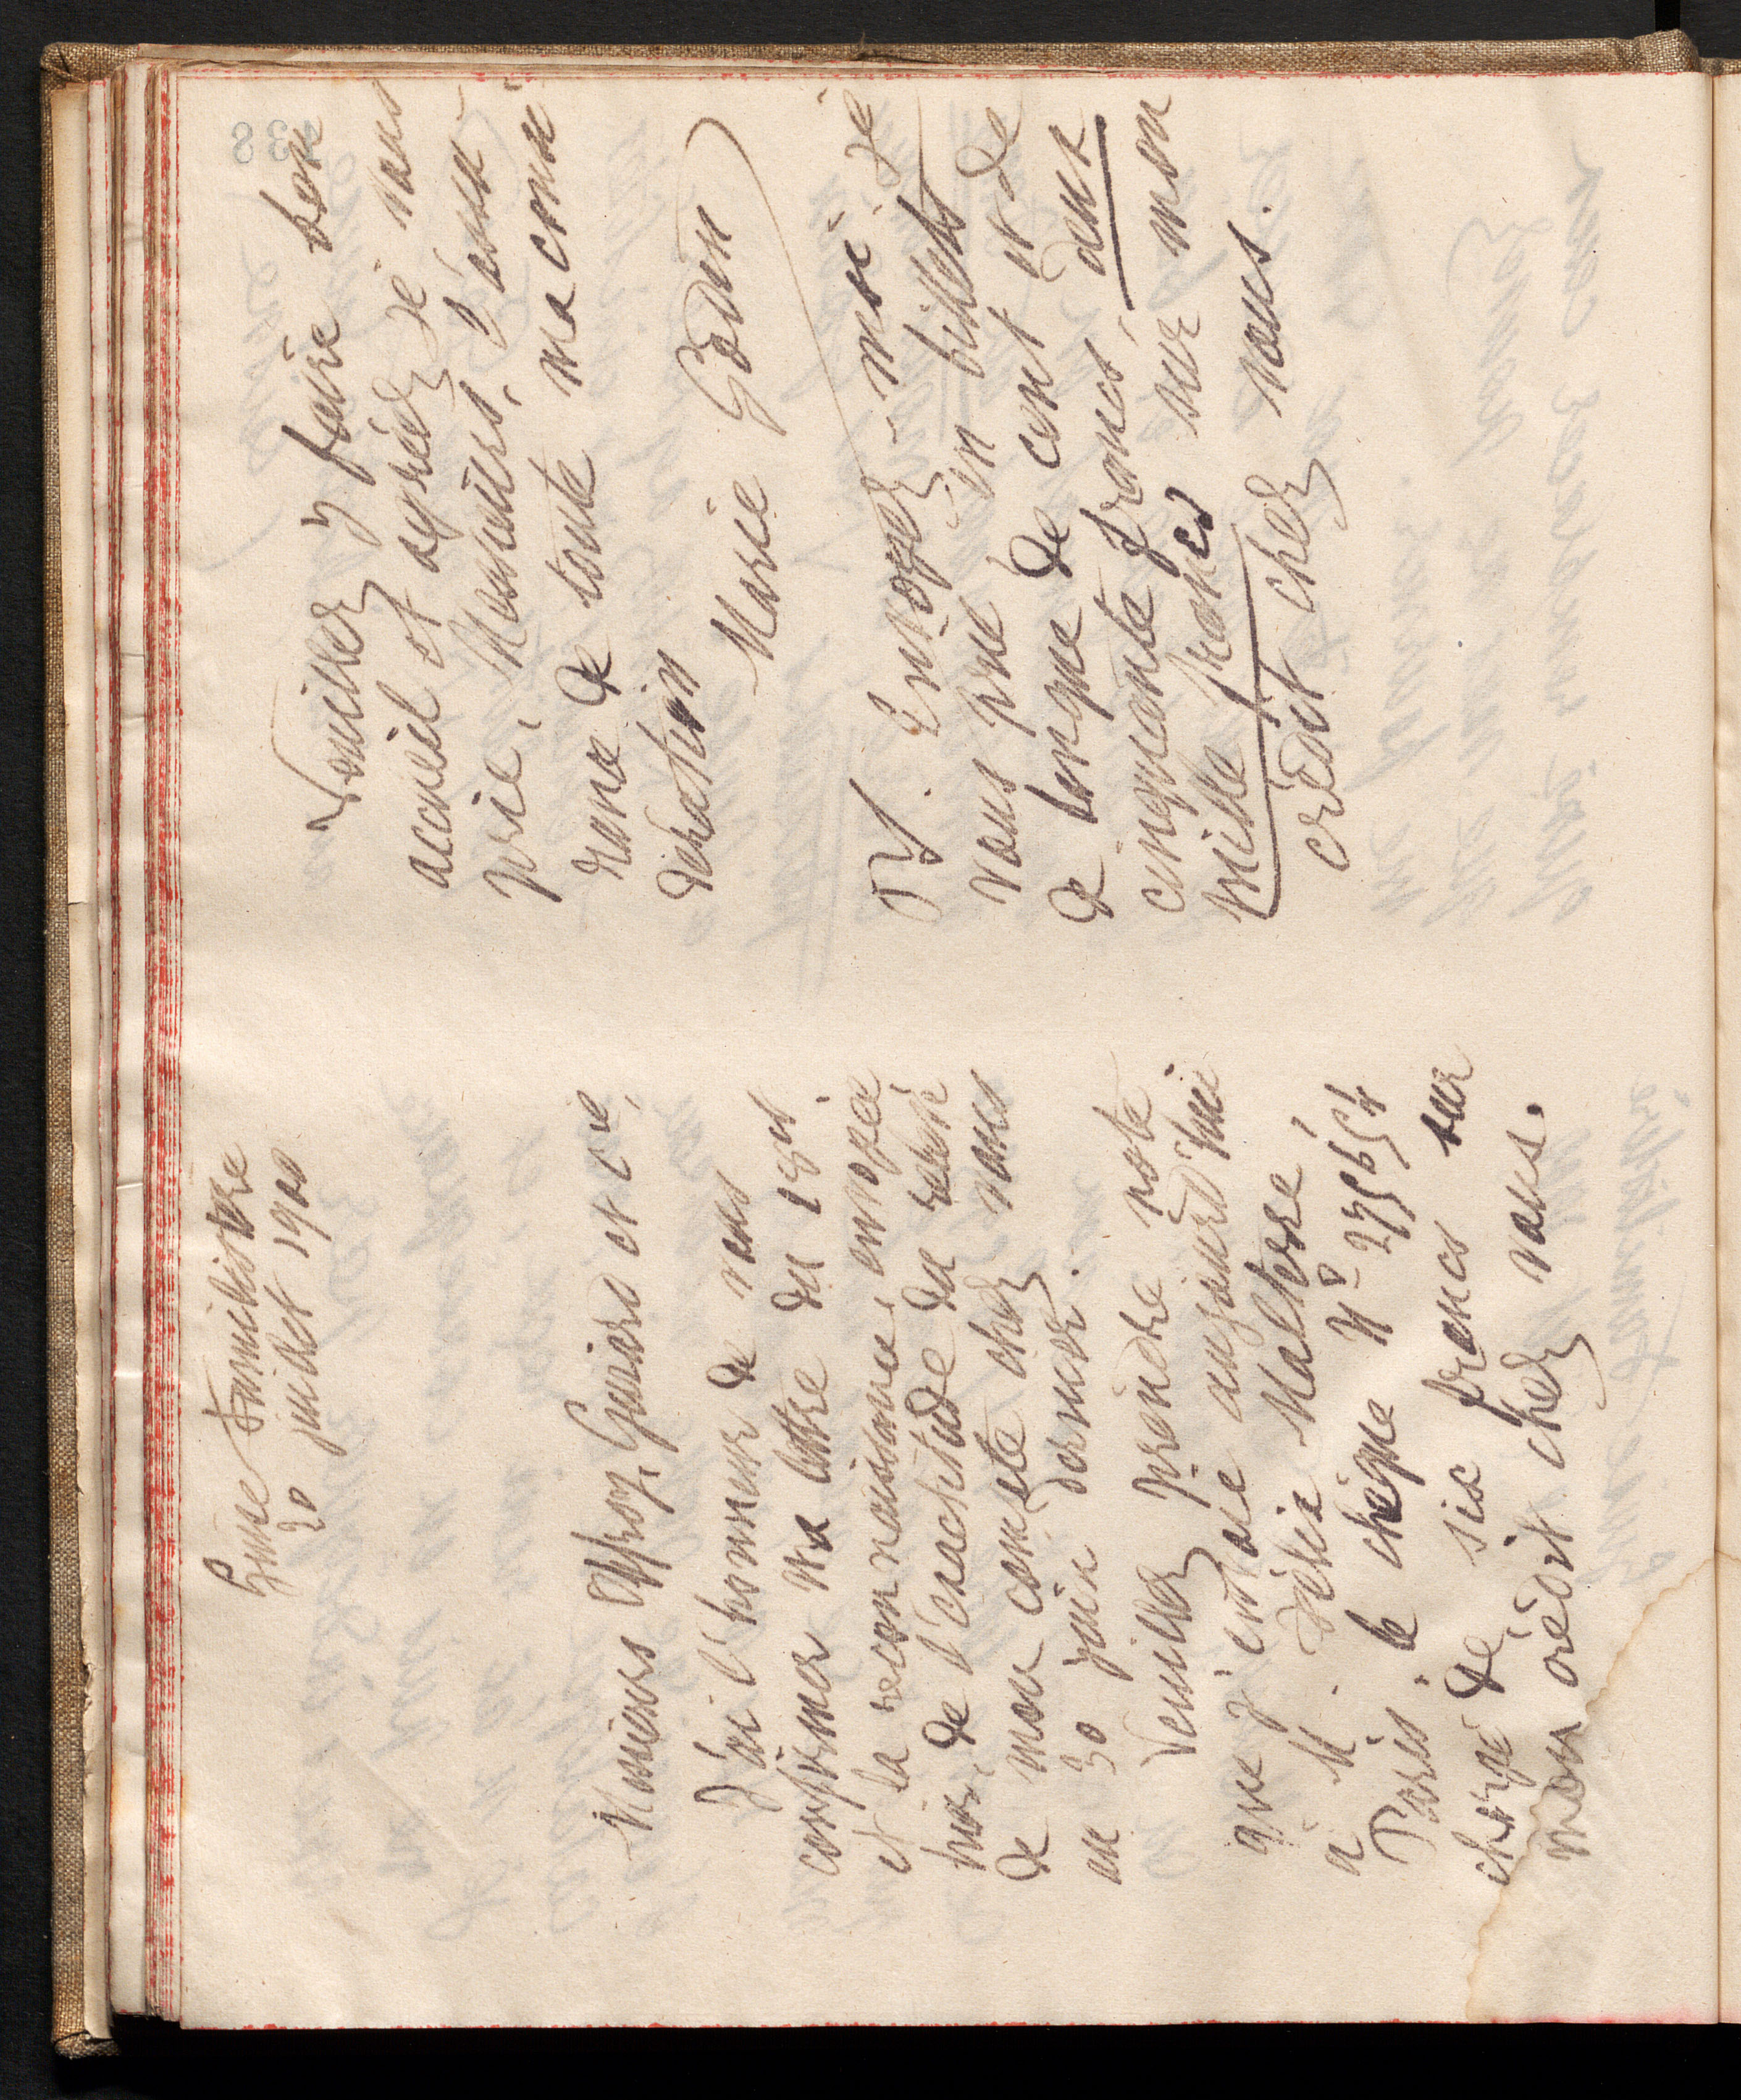 Guise Familistère
20 juillet 1900
Messieurs Offroy, Guiard et Cie,
J'ai l'honneur de vous
confirmer ma lettre du 1er ct.
et la reconnaissance, envoyée
hier, de l'exactitude du relevé
de mon compte chez vous
au 30 juin dernier.
Veuillez prendre note
que j'envoie aujourd'hui
à M. Félix Malterre,
Paris, le chèque No 279654
chargé de six francs sur
mon crédit chez vous.
Veuillez y faire bon
accueil et agréez, je vous
prie, Messieurs, l'assu-
rance de toute ma consi-
dération
Marie Godin
PS. Envoyez-moi je
vous prie en billets
de banque de cent et de
cinquante francs, deux
mille francs sur mon
crédit chez vous.